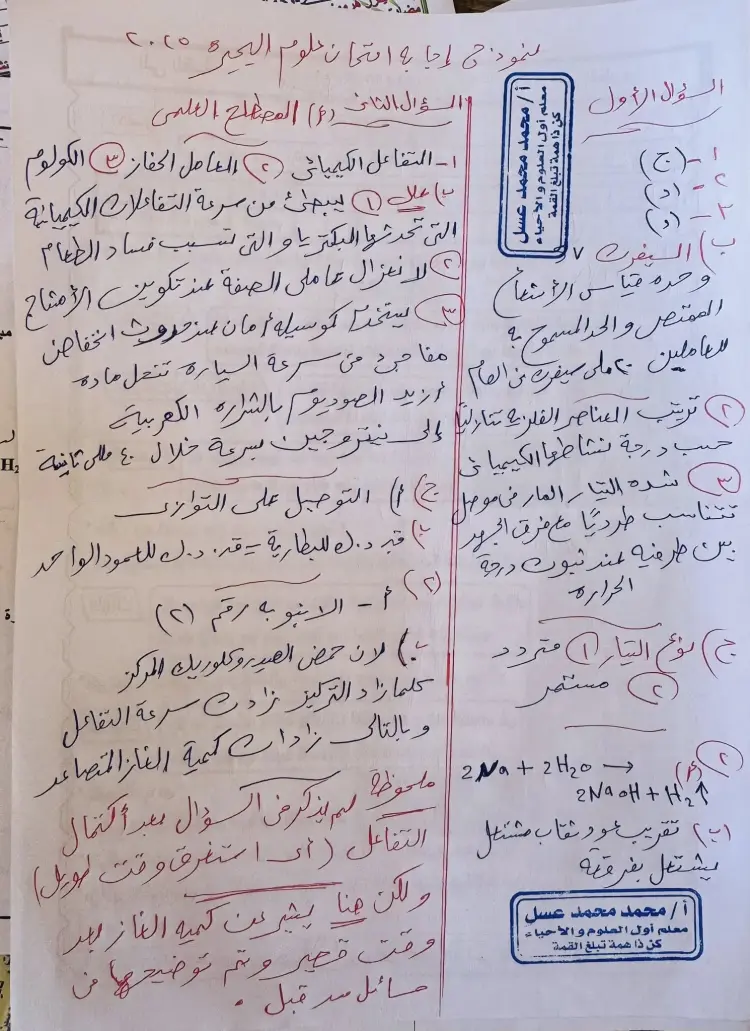 نموذج إجابة امتحان علوم البحيرة ٢٠٢٥
السؤال الأول
أ/ محمد محمد عسل
معلم أول العلوم و الأحياء
كن ذا همة تبلغ القمة
١- (ج)
٢- (د)
٣- (د)
ب) السيفرت
وحده قياس الأشعاع
الممتص والحد المسموح به
للعاملين ٢٠ مللى سيفرت فى العام
(٢) ترتيب العناصر الفلزية تنازليًا
حسب درجة نشاطها الكيميائى
(٣) شده التيار المار فى موصل
تتناسب طرديًا مع فرق الجهد
بين طرفيه عند ثبوت درجة
الحراره
ج) نوع التيار (١) متردد
(٢) مستمر
(٢)
(أ) 2Na + 2H2O →
2NaOH + H2↑
(ب) تقريب عود ثقاب مشتعل
يشتعل بفرقعة
أ/ محمد محمد عسل
معلم أول العلوم و الأحياء
كن ذا همة تبلغ القمة
السؤال الثانى (أ) المصطلح العلمى
١- التفاعل الكيميائى (٢) العامل الحفاز (٣) الكولوم
ب) علل (١) يبطئ من سرعة التفاعلات الكيميائية
التى تحدثها البكتريا و التى تسبب فساد الطعام
(٢) لانعزال عاملى الصفة عند تكوين الأمشاج
(٣) يستخدم كوسيله أمان عند حدوث انخفاض
مفاجئ فى سرعة السيارة تنحل ماده
أزيد الصوديوم بالشراره الكهربية
إلى نيتروجين بسرعة خلال ٤٠ مللى ثانية
ج) أ) التوصيل على التوازى
ب) ق. د. ك للبطارية = ق. د. ك للعمود الواحد
(٢) أ - الانبوبه رقم (٢)
ب) لان حمض الهيدروكلوريك المركز
كلما زاد التركيز زادت سرعة التفاعل
و بالتالى زادت كمية الغاز المتصاعد
ملحوظة لم يذكر فى السؤال بعد أكتمال
التفاعل (أى استغرق وقت طويل)
ولكن هنا يعبر عن كميه الغاز بعد
وقت قصير و تم توضيحها فى
مسائل من قبل .